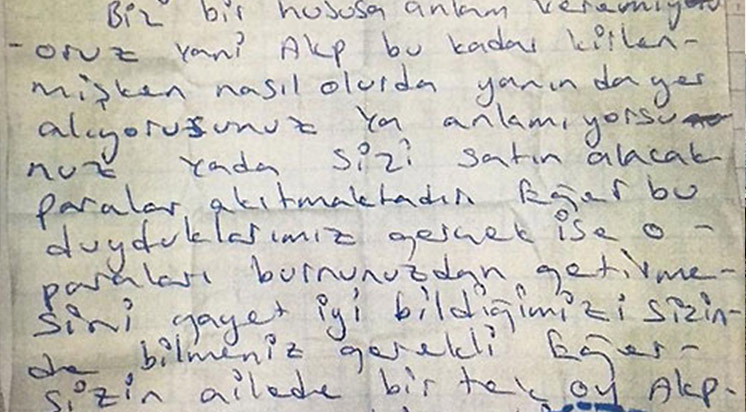 Biz bir hususa anlam veremiyor
-oruz yani Akp bu kadar kirlen-
mişken nasıl olurda yanında yer
alıyorsunuz ya anlamıyorsu
nuz yada sizi satın alacak
paralar akıtmaktadır Eğer bu
duyduklarımız gerçek ise o -
paraları burnunuzdan getirme-
sini gayet iyi bildiğimizi sizin-
de bilmeniz gerekli Eğer-
sizin ailede bir tek oy Akp-